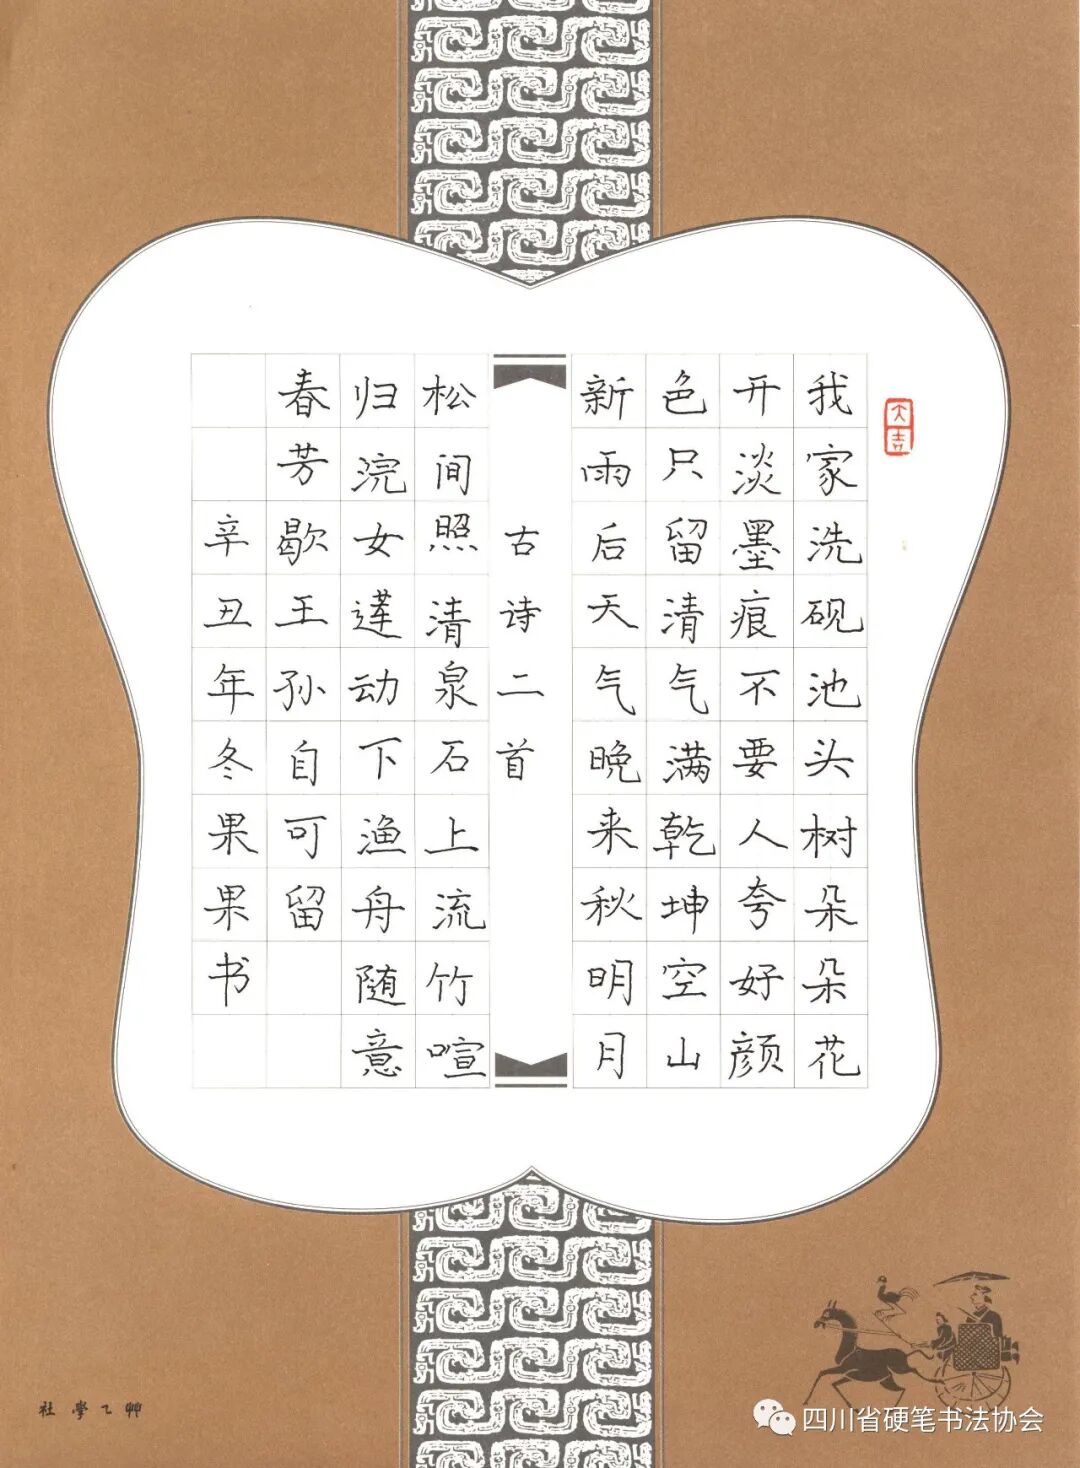 我家洗砚池头树朵朵花
开淡墨痕不要人夸好颜
色只留清气满乾坤空山
新雨后天气晚来秋明月
古诗二首
松间照清泉石上流竹喧
归浣女莲动下渔舟随意
春芳歇王孙自可留
辛丑年冬果果书
大吉
艸乙學社
四川省硬笔书法协会